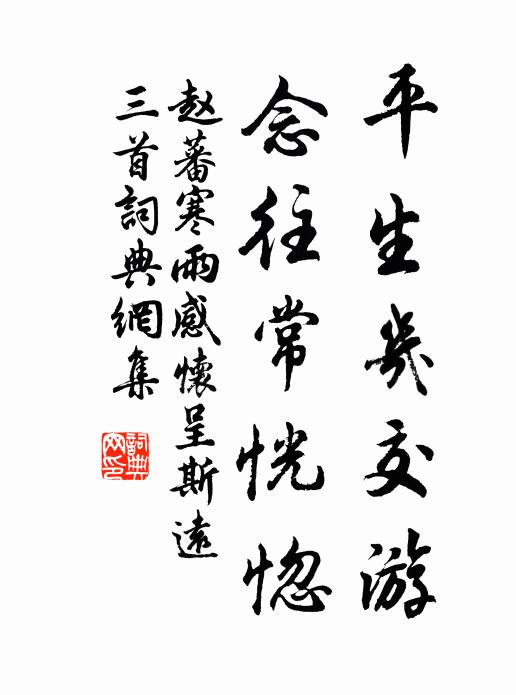 平生幾交游
念往常恍惚
赵蕃寒雨感懷呈斯遠
三首詞典網集
詞典
网印